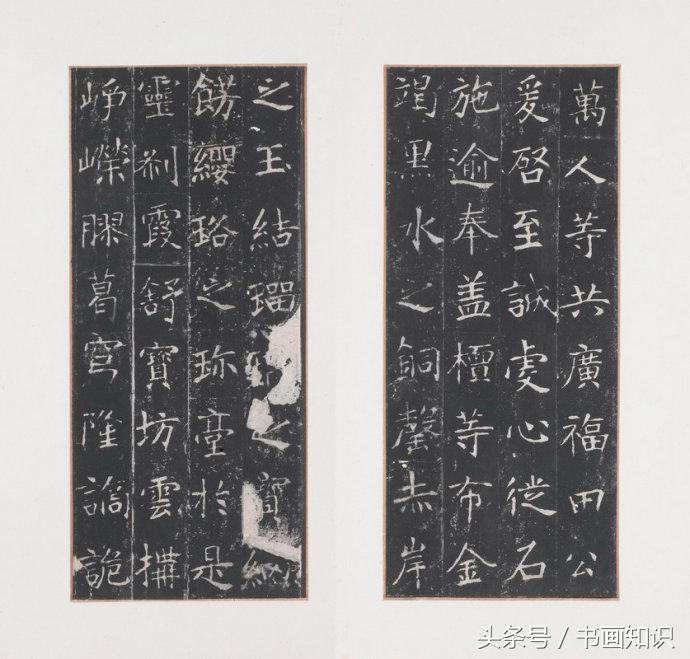 萬人等共廣福田公
爰啓至誠虔心徙石
施逾奉盖檀等布金
竭黒水之銅罄赤岸
之玉結瑠之寶網
餝纓珞之珎臺於是
靈刹霞舒寶坊雲構
崢嶸膠葛穹隆譎詭
头条号／书画知识